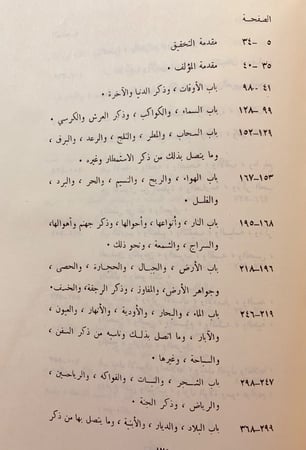 الصفحة
٥ –٣٤ مقدمة التحقيق
٣٥ –٤٠ مقدمة المؤلف .
٤١ –٩٨ باب الأوقات ، وذكر الدنيا والآخرة .
٩٩ –١٢٨ باب السماء ، والكواكب ، وذكر العرش والكرسي .
١٢٩–١٥٢ باب السحاب ، والمطر ، والثلج ، والرعد ، والبرق ،
وما يتصل بذلك من ذكر الاستمطار وغيره .
١٥٣–١٦٧ باب الهواء ، والريح ، والنسيم ، والحر ، والبرد ،
والظلّ .
١٦٨–١٩٥ باب النار ، وأنواعها ، وأحوالها ، وذكر جهنم وأهوالها ،
والسراج ، والشمعة ، ونحو ذلك .
١٩٦–٢١٨ باب الأرض ، والجبال ، والحجارة ، والحصى ،
وجواهر الأرض ، والمفاوز ، وذكر الرجفة ، والخسف .
٢١٩–٢٤٦ باب الماء ، والبحار ، والأودية ، والأنهار ، والعيون ،
والآبار ، وما اتصل بذلك وناسبه من ذكر السفن ،
والسباحة ، وغيرها .
٢٤٧–٢٩٨ باب الشجر ، والنبات ، والفواكه ، والرياحين ،
والرياض ، وذكر الجنة .
٢٩٩–٣٦٨ باب البلاد ، والديار ، والأبنية ، وما يتصل بها من ذكر